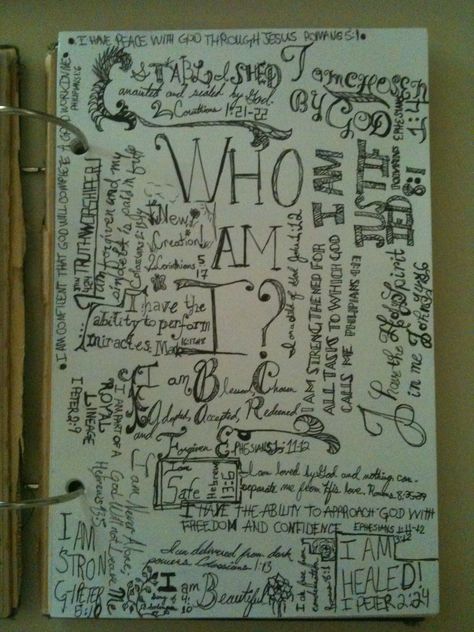 • I HAVE PEACE WITH GOD THROUGH JESUS ROMANS 5:1 •
• I AM CONFIDENT THAT GOD WILL COMPLETE A GOOD WORK IN ME
PHILIPPIANS 1:6
ESTABLISHED
anointed and sealed by God.
2 Corinthians 1:21-22
I am CHOSEN
BY GOD
EPHESIANS 1:4
WHO
AM
I?
I AM
JUSTIFIED
ROMANS
8:1
New
Creation!
2 Corinthians 5
17
I am TRUTH WORSHIPER
JOHN 4:24
I am forgiven and my
sin debt is paid in full
Colossians
I have the
ability to perform
miracles. Mark 16:17-18
I AM STRENGTHENED FOR
ALL TASKS TO WHICH GOD
CALLS ME PHILIPPIANS 4:13
I have the Holy Spirit
in me
I am Blessed Chosen
Adopted, Accepted, Redeemed
and Forgiven EPHESIANS 1:1-12
I AM PART OF A
ROYAL
LINEAGE
I PETER 2:9
I am Never Alone,
God Will not Leave Me
Hebrews 13:5
I am
Safe
Hebrews
13:5
I am loved by God and nothing can
separate me from His love. Romans 8:35-39
I HAVE THE ABILITY TO APPROACH GOD WITH
FREEDOM AND CONFIDENCE EPHESIANS
I am delivered from dark
powers. Colossians 1:13
I AM
STRONG
I PETER
5:10
I am
Beautiful
Song of
Solomon
I am free from
condemnation
Romans 8:1
I AM
HEALED!
I PETER 2:24